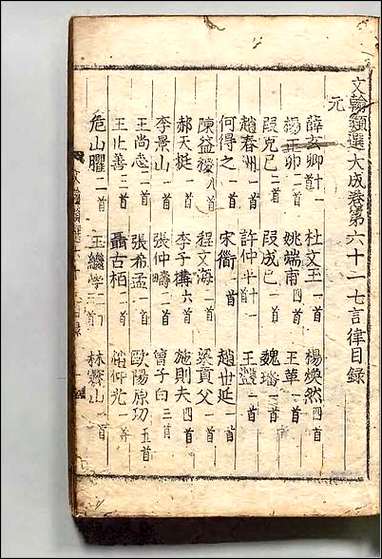 文翰類選大成卷第六十二七言律目錄
元
薛玄卿廿一 杜文玉一首 楊煥然四首
楊正卯二首 姚端甫四首 王革一首
段克已二首 段成已一首 魏璠一首
趙春洲一首 許仲平十一 王盤一首
何得之一首 宋衜一首 趙世延一首
陳益稷八首 程文海二首 梁貢父二首
郝天挺一首 李子構六首 施則夫四首
李景山一首 張仲疇二首 曾子白三首
王尚志二首 張希孟一首 歐陽原功五首
王止善三首 聶古栢一首 仰光一首
危山臞二首 王繼學二首 林霽山一首